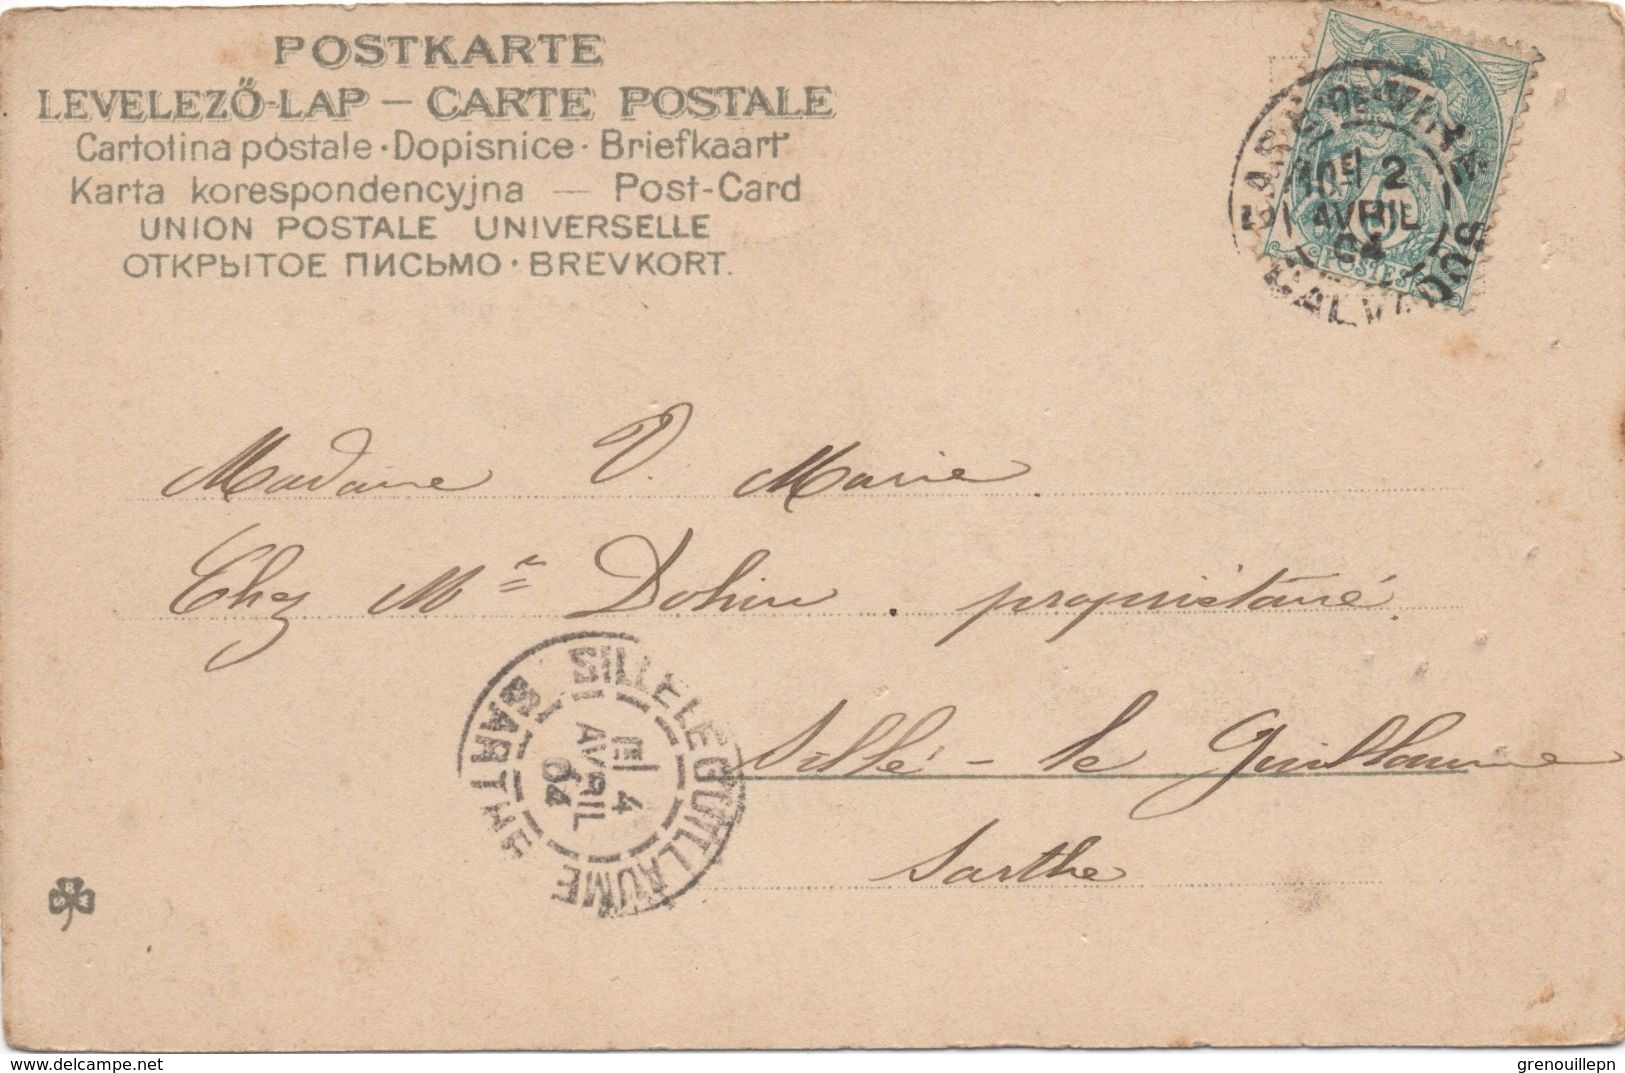 POSTKARTE
LEVELEZŐ-LAP — CARTE POSTALE
Cartolina postale · Dopisnice · Briefkaart
Karta korespondencyjna — Post-Card
UNION POSTALE UNIVERSELLE
ОТКРЫТОЕ ПИСЬМО · BREVKORT.
2
AVRIL
04
CALVADOS
POSTES
Madame V. Marie
Chez Mr Dohin. propriétaire
Sillé-le Guillaume
Sarthe
SILLE LE GUILLAUME
SARTHE
4
AVRIL
04
delcampe.net
grenouillepn